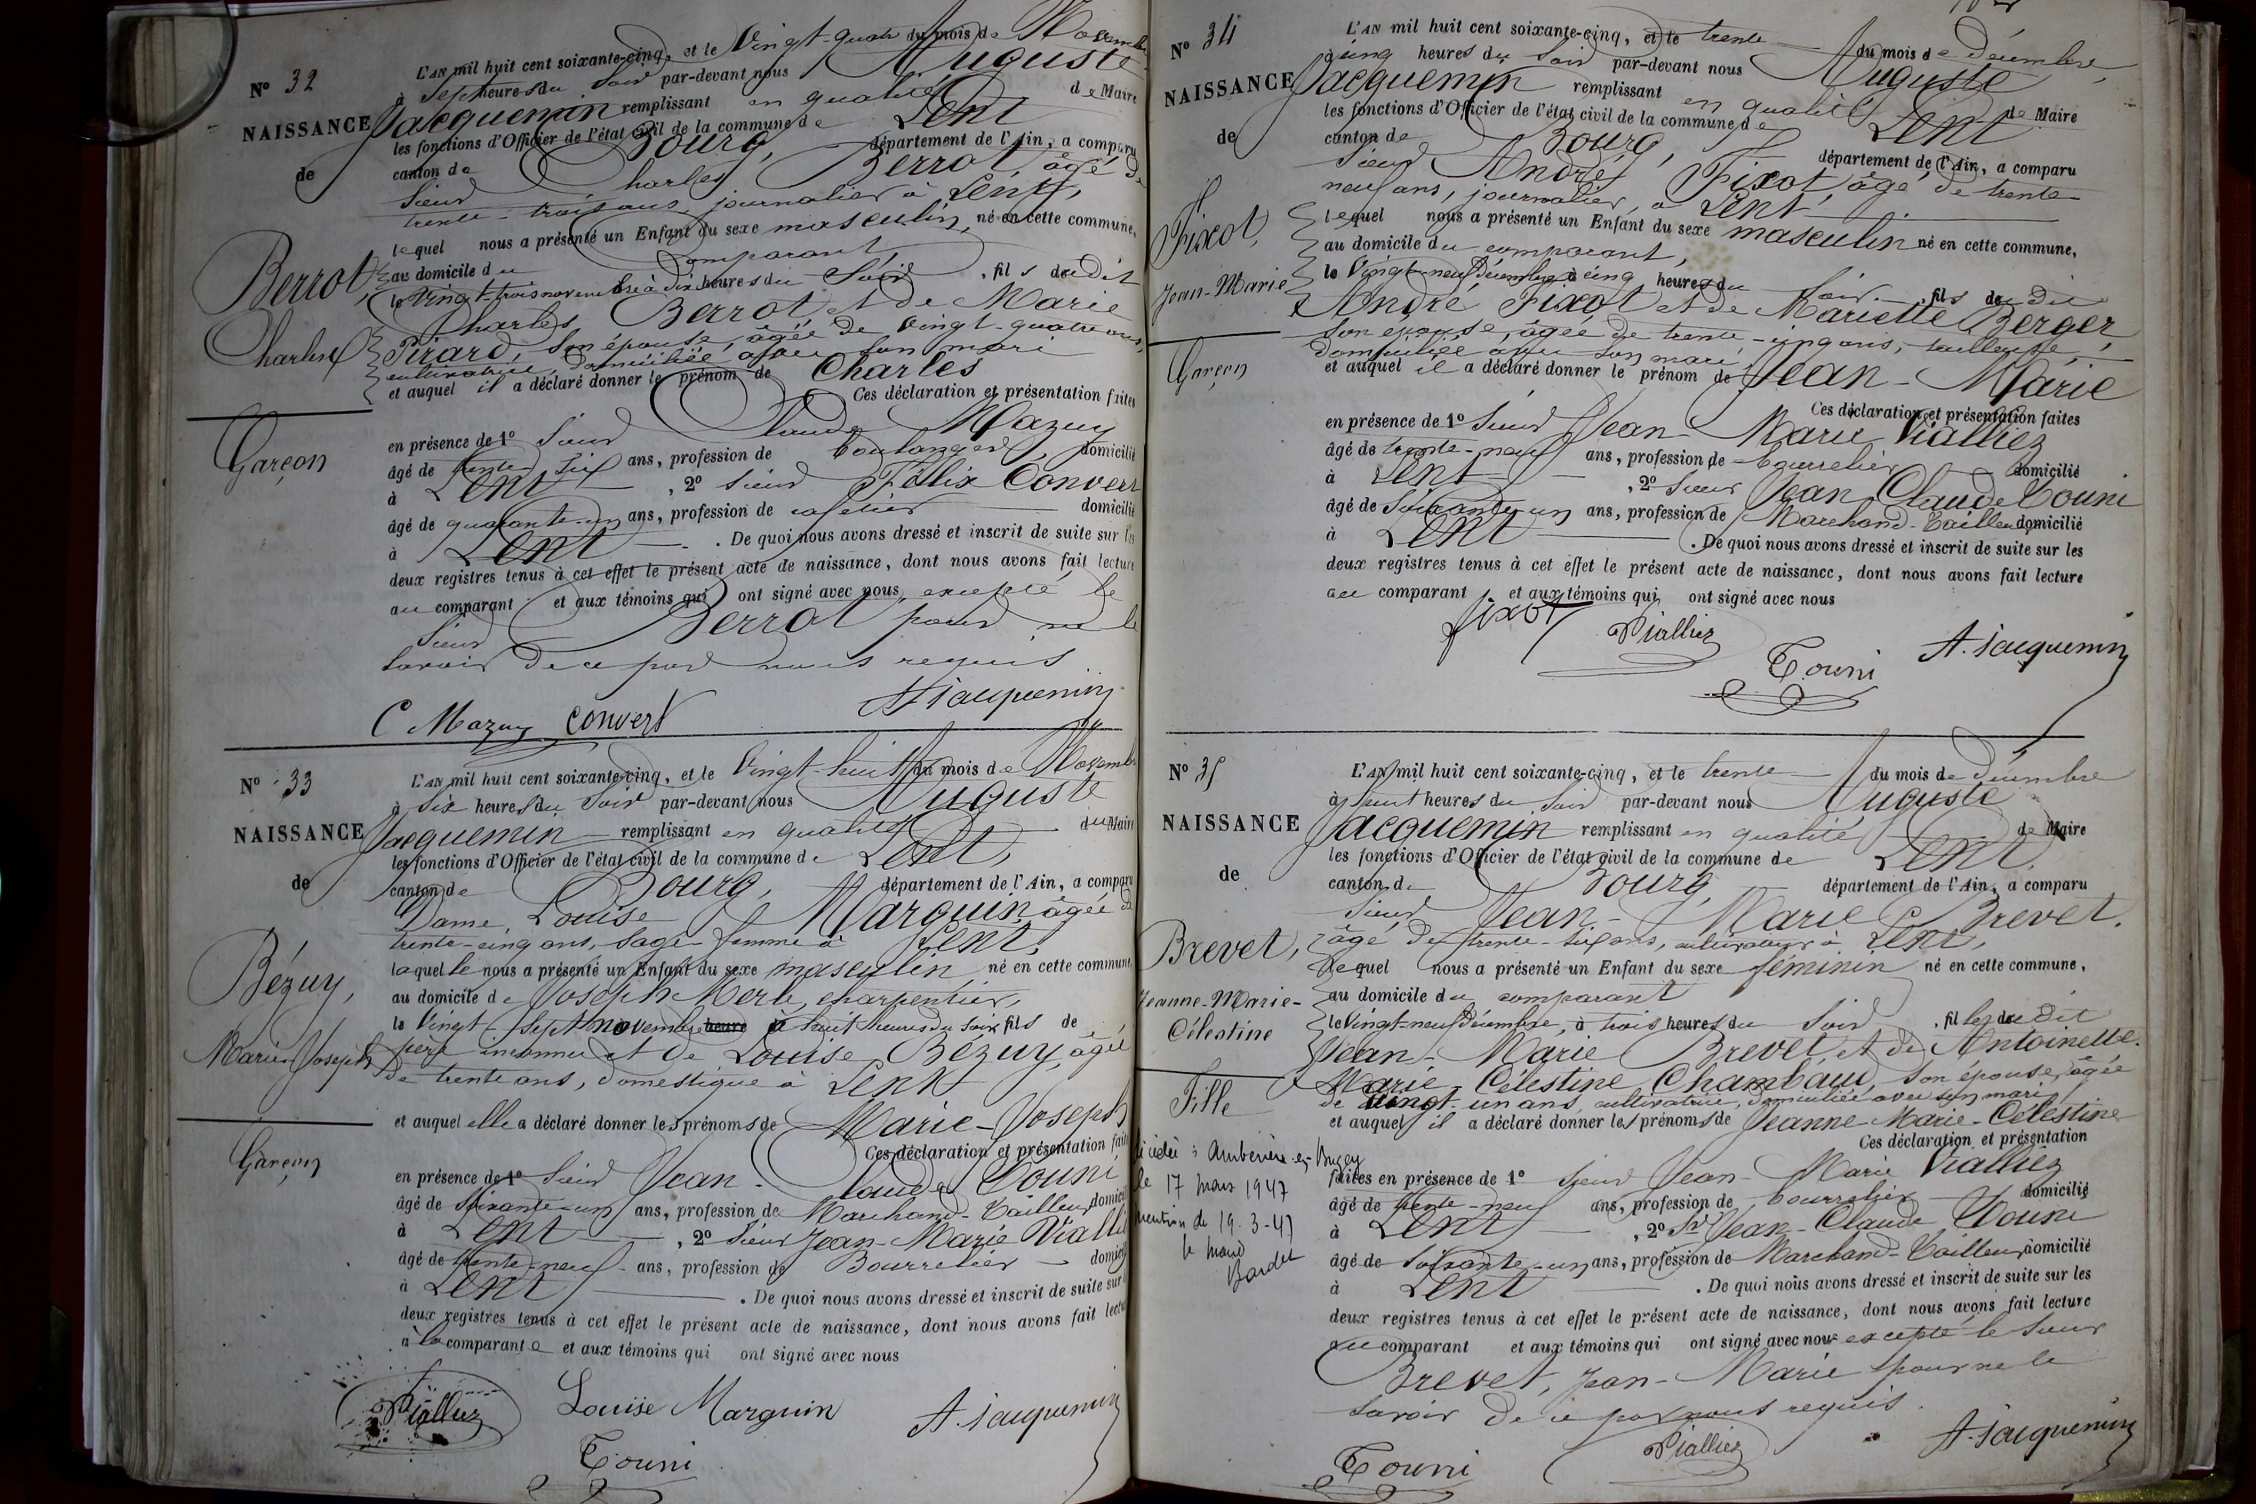 N° 32
NAISSANCE
de
Berrot,
Charles
Garçon
L'AN mil huit cent soixante-cinq, et le Vingt-quatre du mois de Novembre
à Sept heures du Soir par-devant nous Auguste
Jacquemin remplissant en qualité de Maire
les fonctions d'Officier de l'état civil de la commune de Lent
canton de Bourg, département de l'Ain, a comparu
Sieur Charles Berrot âgé de
trente-trois ans, journalier à Lent,
lequel nous a présenté un Enfant du sexe masculin, né en cette commune,
au domicile du comparant,
le Vingt-trois novembre à dix heures du Soir, fils dudit
Charles Berrot et de Marie
Pirard, son épouse, âgée de vingt-quatre ans,
cultivatrice, domiciliée avec son mari
et auquel il a déclaré donner le prénom de Charles
Ces déclaration et présentation faites
en présence de 1° Sieur Claude Mazuy
âgé de trente-six ans, profession de boulanger, domicilié
à Lent, 2° Sieur Félix Convert
âgé de quarante-un ans, profession de cafetier domicilié
à Lent. De quoi nous avons dressé et inscrit de suite sur les
deux registres tenus à cet effet le présent acte de naissance, dont nous avons fait lecture
au comparant et aux témoins qui ont signé avec nous, excepté le
Sieur Berrot pour ne le
savoir de ce par nous requis.
A. Jacquemin
C Mazuy Convert
N° 33
NAISSANCE
de
Bézuy,
Marie-Joseph
Garçon
L'AN mil huit cent soixante-cinq, et le Vingt-huit du mois de Novembre
à Six heures du Soir par-devant nous Auguste
Jacquemin remplissant en qualité du Maire
les fonctions d'Officier de l'état civil de la commune de Lent,
canton de Bourg, département de l'Ain, a comparu
Dame Louise Marguin, âgée de
trente-cinq ans, Sage-femme à Lent,
laquelle nous a présenté un Enfant du sexe masculin né en cette commune,
au domicile de Joseph Merle, charpentier,
le Vingt-Sept novembre heure à huit heures du soir fils de
père inconnu et de Louise Bézuy, âgée
de trente ans, domestique à Lent
et auquel elle a déclaré donner les prénoms de Marie-Joseph
Ces déclaration et présentation faites
en présence de 1° Sieur Jean-Claude Touni
âgé de Soixante-un ans, profession de Marchand-Tailleur, domicilié
à Lent, 2° Sieur Jean-Marie Viallie
âgé de trente-neuf ans, profession de Bourrelier domicilié
à Lent. De quoi nous avons dressé et inscrit de suite sur les
deux registres tenus à cet effet le présent acte de naissance, dont nous avons fait lecture
à la comparante et aux témoins qui ont signé avec nous
Vialliez Louise Marguin A. Jacquemin
Touni
N° 34
NAISSANCE
de
Fixot,
Jean-Marie
Garçon
L'AN mil huit cent soixante-cinq, et le trente du mois de décembre,
à cinq heures du Soir par-devant nous Auguste
Jacquemin remplissant en qualité de Maire
les fonctions d'Officier de l'état civil de la commune de Lent
canton de Bourg, département de l'Ain, a comparu
Sieur André Fixot, âgé de trente-
neuf ans, journalier, à Lent
lequel nous a présenté un Enfant du sexe masculin né en cette commune,
au domicile du comparant,
le Vingt-neuf Décembre à cinq heures du Soir, fils dudit
André Fixot et de Mariette Berger,
son épouse, âgée de trente-cinq ans, tailleuse,
domiciliée avec son mari,
et auquel il a déclaré donner le prénom de Jean-Marie
Ces déclaration et présentation faites
en présence de 1° Sieur Jean-Marie Vialliez
âgé de trente-neuf ans, profession de bourrelier domicilié
à Lent, 2° Sieur Jean Claude Touni
âgé de Soixante-un ans, profession de Marchand-Tailleur domicilié
à Lent. De quoi nous avons dressé et inscrit de suite sur les
deux registres tenus à cet effet le présent acte de naissance, dont nous avons fait lecture
au comparant et aux témoins qui ont signé avec nous
fixot Vialliez Touni A. Jacquemin
N° 35
NAISSANCE
de
Brevet,
Jeanne-Marie-
Célestine
Fille
décédée à Ambérieu-en-Bugey
le 17 mars 1947
mention de 19-3-47
L'AN mil huit cent soixante-cinq, et le trente du mois de décembre
à huit heures du Soir par-devant nous Auguste
Jacquemin remplissant en qualité de Maire
les fonctions d'Officier de l'état civil de la commune de Lent,
canton de Bourg, département de l'Ain, a comparu
Sieur Jean-Marie Brevet,
âgé de trente-six ans, cultivateur à Lent,
lequel nous a présenté un Enfant du sexe féminin né en cette commune,
au domicile du comparant
le Vingt-neuf Décembre, à trois heures du Soir, fille dudit
Jean-Marie Brevet, et de Antoinette
Marie-Célestine Chambaud, son épouse, âgée
de vingt-un ans, cultivatrice, domiciliée avec son mari,
et auquel il a déclaré donner les prénoms de Jeanne-Marie-Célestine
Ces déclaration et présentation
faites en présence de 1° Sieur Jean-Marie Vialliez
âgé de trente-neuf ans, profession de bourrelier domicilié
à Lent, 2° Sr Jean-Claude Touni
âgé de Soixante-un ans, profession de Marchand-Tailleur domicilié
à Lent. De quoi nous avons dressé et inscrit de suite sur les
deux registres tenus à cet effet le présent acte de naissance, dont nous avons fait lecture
au comparant et aux témoins qui ont signé avec nous excepté le Sieur
Brevet, Jean-Marie pour ne le
savoir de ce par nous requis.
Touni Vialliez A. Jacquemin